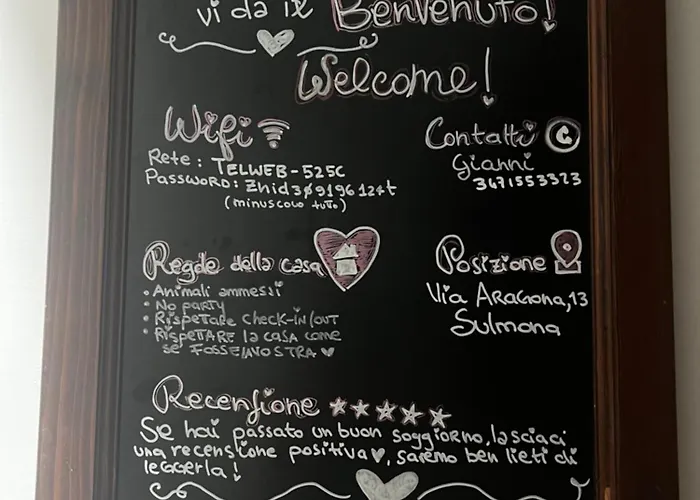 vi da il Benvenuto!
Welcome!
Wifi
Rete: TELWEB-525C
Password: Zhid309196124t
(minuscolo tutto)
Contatti
Gianni
3471553323
Regole della casa
• Animali ammessi
• No party
• Rispettare check-in/out
• Rispettare la casa come
se fosse la vostra
Posizione
Via Aragona, 13
Sulmona
Recensione
Se hai passato un buon soggiorno, lasciaci
una recensione positiva, saremo ben lieti di
leggerla!